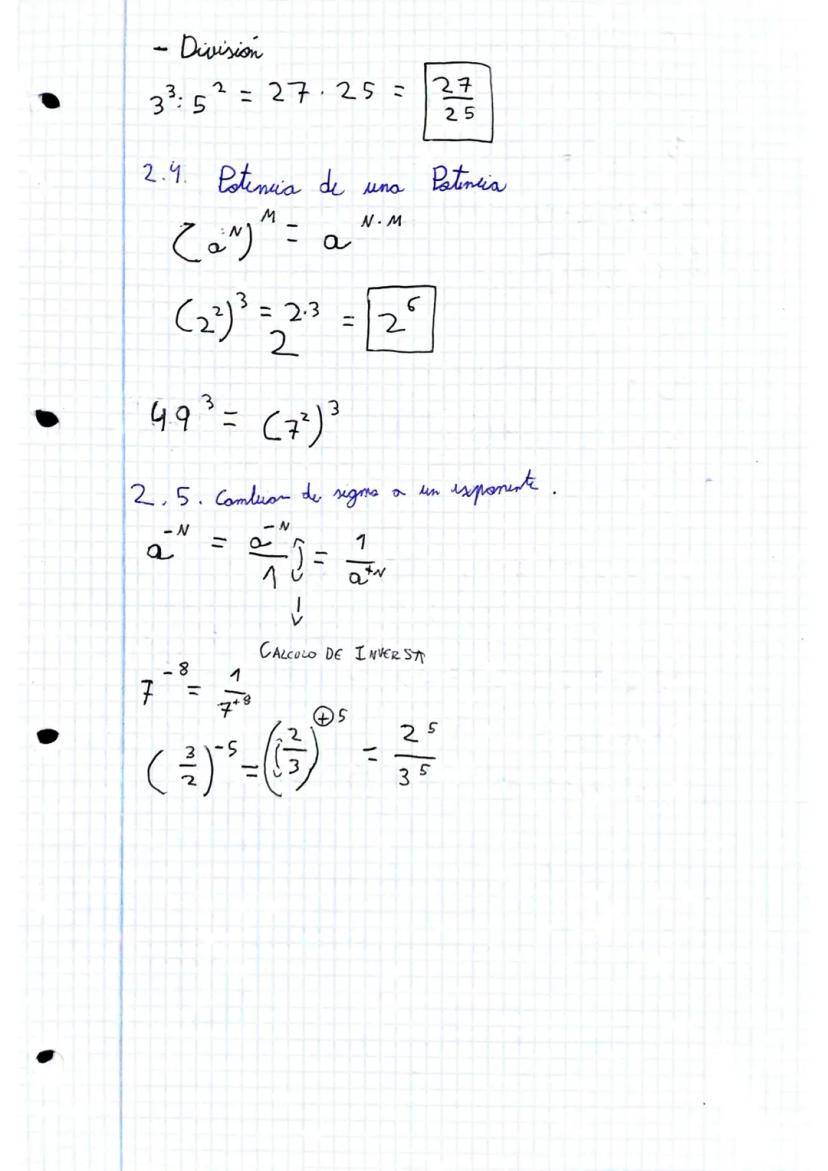 - División
3³:5² = 27 · 25 = 27/25
2.4. Potencia de una Potencia
(a^N)^M = a^(N·M)
(2²)³ = 2^(2·3) = 2⁶
49³ = (7²)³
2.5. de signo a un exponente.
a^(-N) = a^(-N)/1 = 1/a^(+N)
CALCULO DE INVERSA
7^(-8) = 1/7^(+8)
(3/2)^(-5) = (2/3)^(+5) = 2⁵/3⁵